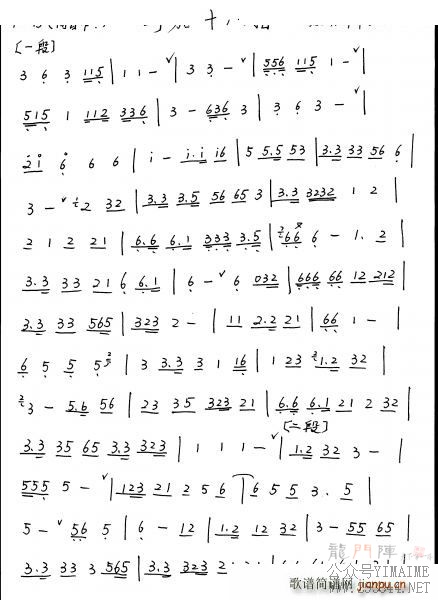 [一段]
3 6 3 115 | 1 1 - ˅ | 3 3 - ˅ | 556 115 1 - ˅ |
515 1 112 336 | 3 - 636 3 | 3 6 3 - ˅ |
2i 6 6 6 | i - i.i i6 | 5 5.5 53 | 3.3 33 56 6 |
3 - ˅ 2 32 | 3.3 3.5 56 65 3 | 3.3 3232 1 2 |
2 1 2 21 | 6.6 6.1 333 3.5 | 66 6 - 1. 2 |
3.3 33 21 6 6.1 | 6 - ˅ 6 032 | 666 66 12 212 |
3.3 33 565 | 323 2 - | 11 2.2 21 | 66 1 - |
6 5 5 5 | 3 3.3 3 1 16 | 1 23 1.2 32 |
3 - 5.6 56 | 23 35 323 21 | 6.6 6.1 21 2 32 |
[二段]
3.3 35 65 3.3 323 | 1 1 1 - ˅ | 1.2 32 3 - |
555 5 - ˅ | 123 21 2 5 6 | 6 5 5 3. 5 |
5 - ˅ 56 5 | 6 - 12 | 1.2 12 32 | 3 - 55 65 |
3.3 33 3 565 | 3.3 323 2
龍門陣
公众号YIMAIME
歌谱简谱网
jianpu.cn